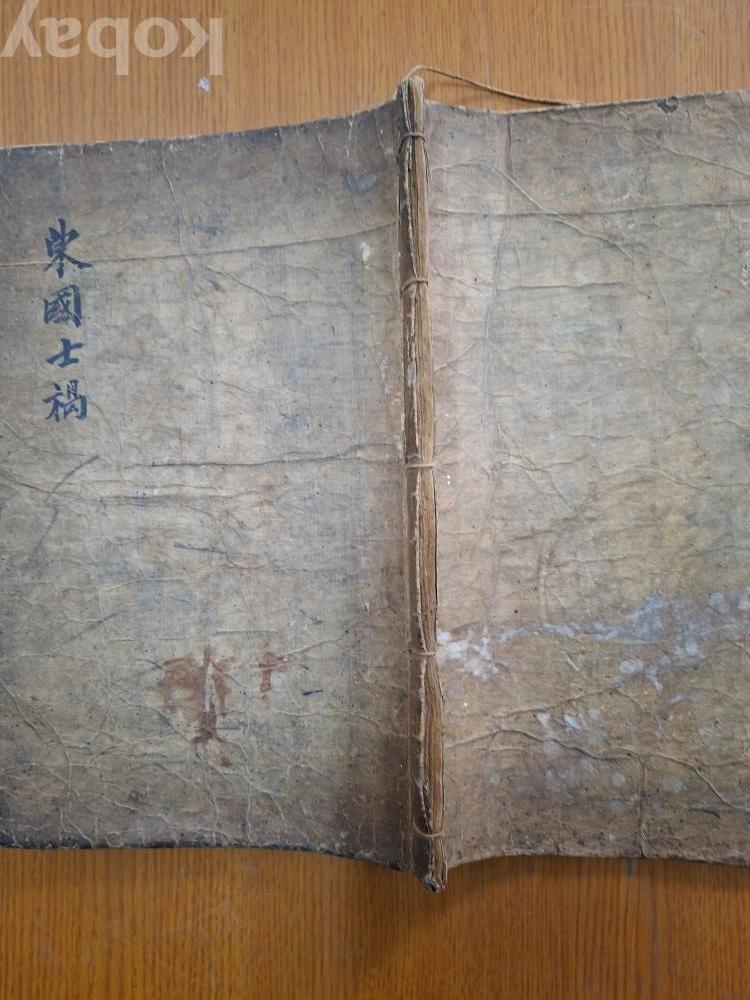 kobay
東國士禍